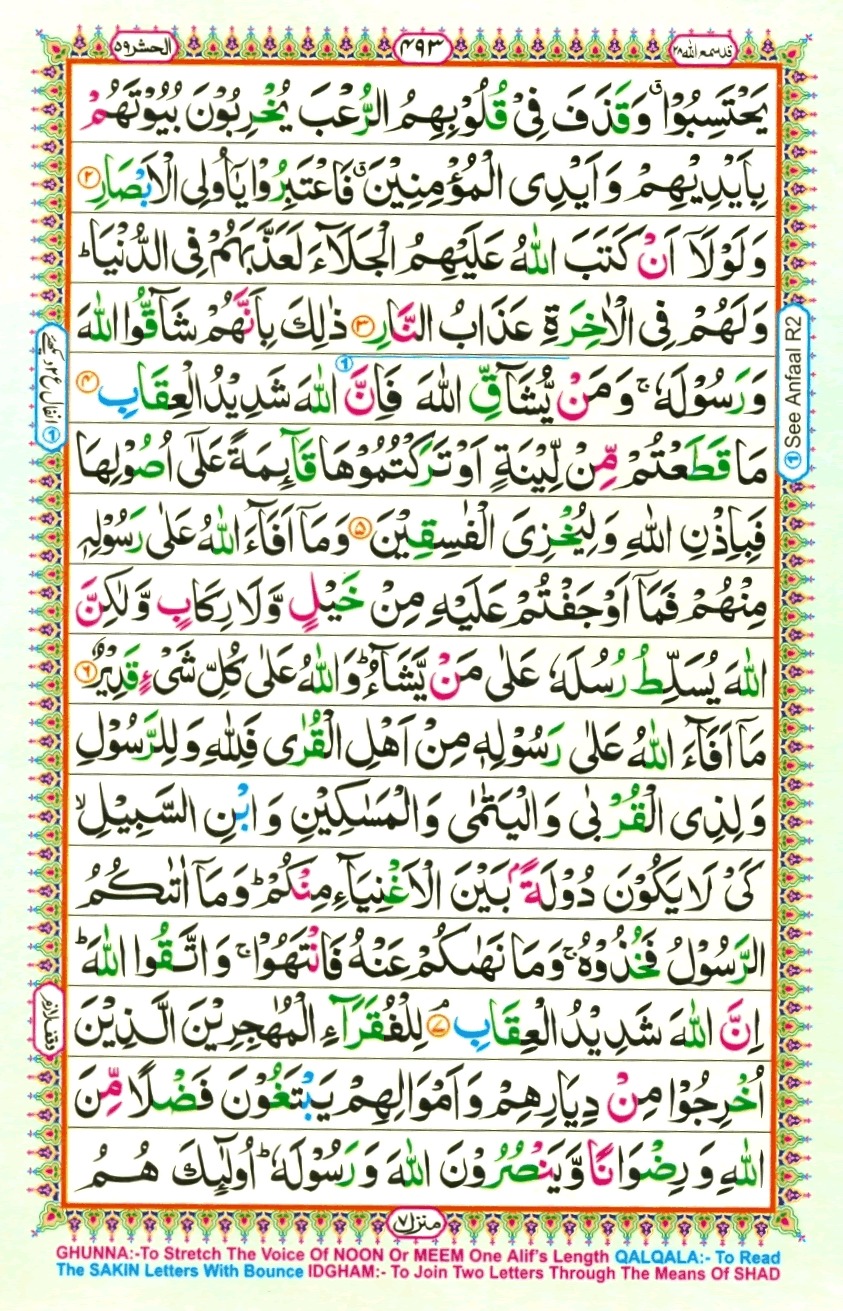 قد سمع الله ۲۸
۴۹۳
الحشر ۵۹
يَحْتَسِبُوْا ۗ وَقَذَفَ فِىْ قُلُوْبِهِمُ الرُّعْبَ يُخْرِبُوْنَ بُيُوْتَهُمْ
بِاَيْدِيْهِمْ وَاَيْدِى الْمُؤْمِنِيْنَ ۗ فَاعْتَبِرُوْا يٰۤاُولِى الْاَبْصَارِ ۲
وَلَوْلَاۤ اَنْ كَتَبَ اللّٰهُ عَلَيْهِمُ الْجَلَاۤءَ لَعَذَّبَهُمْ فِى الدُّنْيَا ؕ
وَلَهُمْ فِى الْاٰخِرَةِ عَذَابُ النَّارِ ۳ ذٰلِكَ بِاَنَّهُمْ شَآقُّوا اللّٰهَ
وَرَسُوْلَهٗ ۚ وَمَنْ يُّشَآقِّ اللّٰهَ فَاِنَّ اللّٰهَ شَدِيْدُ الْعِقَابِ ۴
مَا قَطَعْتُمْ مِّنْ لِّيْنَةٍ اَوْ تَرَكْتُمُوْهَا قَآٮِٕمَةً عَلٰٓى اُصُوْلِهَا
فَبِاِذْنِ اللّٰهِ وَلِيُخْزِىَ الْفٰسِقِيْنَ ۵ وَمَاۤ اَفَآءَ اللّٰهُ عَلٰى رَسُوْلِهٖ
مِنْهُمْ فَمَاۤ اَوْجَفْتُمْ عَلَيْهِ مِنْ خَيْلٍ وَّلَا رِكَابٍ وَّلٰكِنَّ
اللّٰهَ يُسَلِّطُ رُسُلَهٗ عَلٰى مَنْ يَّشَآءُ ؕ وَاللّٰهُ عَلٰى كُلِّ شَىْءٍ قَدِيْرٌ ۶
مَاۤ اَفَآءَ اللّٰهُ عَلٰى رَسُوْلِهٖ مِنْ اَهْلِ الْقُرٰى فَلِلّٰهِ وَلِلرَّسُوْلِ
وَلِذِى الْقُرْبٰى وَالْيَتٰمٰى وَالْمَسٰكِيْنِ وَابْنِ السَّبِيْلِ ۙ
كَىْ لَا يَكُوْنَ دُوْلَةًۢ بَيْنَ الْاَغْنِيَآءِ مِنْكُمْ ؕ وَمَاۤ اٰتٰٮكُمُ
الرَّسُوْلُ فَخُذُوْهُ ۚ وَمَا نَهٰٮكُمْ عَنْهُ فَانْتَهُوْا ۚ وَاتَّقُوا اللّٰهَ ؕ
اِنَّ اللّٰهَ شَدِيْدُ الْعِقَابِ ۷ۘ لِلْفُقَرَآءِ الْمُهٰجِرِيْنَ الَّذِيْنَ
اُخْرِجُوْا مِنْ دِيَارِهِمْ وَاَمْوَالِهِمْ يَبْتَغُوْنَ فَضْلًا مِّنَ
اللّٰهِ وَرِضْوَانًا وَّيَنْصُرُوْنَ اللّٰهَ وَرَسُوْلَهٗ ؕ اُولٰٓٮِٕكَ هُمُ
① See Anfaal R2
① انفال ۲۶ دیکھئے
وقف لازم
منزل ۷
GHUNNA:-To Stretch The Voice Of NOON Or MEEM One Alif's Length QALQALA:- To Read
The SAKIN Letters With Bounce IDGHAM:- To Join Two Letters Through The Means Of SHAD